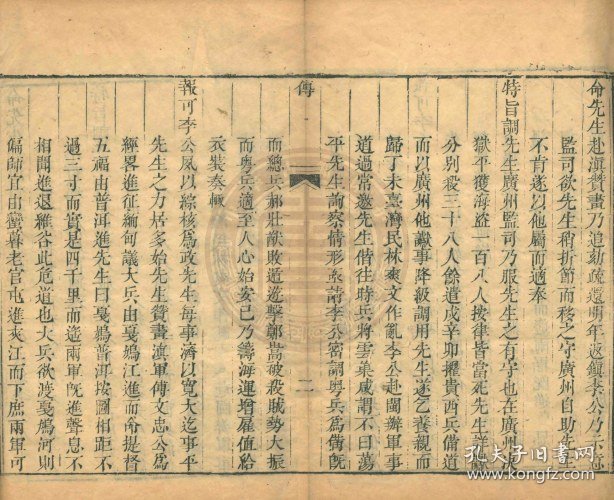 命先生赴滇贊畫乃追劾疏還明年返鎮李公乃不
監司欲先生稍折節而移之守廣州自助先生
不肯遂以他屬而適奉
特旨調先生廣州監司乃服先生之有守也在廣州決
獄平獲海盜一百八人按律皆當死先生詳讞
分別殺三十八人餘遣戍辛卯擢貴西兵備道
而以廣州他讞事降級調用先生遂乞養親而
歸丁未臺灣民林爽文作亂李公赴閩辦軍事
道過常邀先生偕往時兵將雲集咸謂不日蕩
平先生詢察情形亟請李公密調粵兵爲備既
傳
二
而總兵郝壯猷敗遁遊擊鄭嵩被殺賊勢大振
而粵兵適至人心始安已乃籌海運增雇值給
衣裝奏輒
報可李公風以綜核爲政先生每事濟以寬大迄事平
先生之力居多始先生贊畫滇軍傅文忠公爲
經畧進征緬甸議大兵由戛鳩江進而令提督
五福由普洱進先生曰戛鳩普洱按圖相距不
過三寸而實是四千里而遙兩軍既進聲息不
相聞進退維谷此危道也大兵欲渡戛鳩河則
偏師宜由蠻暮老官屯進夾江而下庶兩軍可
孔夫子旧书网